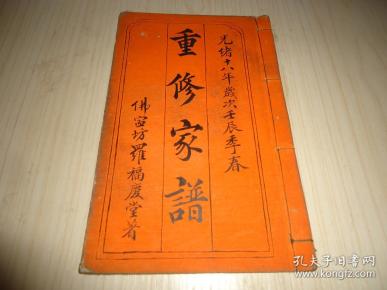 光绪十八年歲次壬辰季春
重修家譜
佛宙坊羅福慶堂着
孔夫子旧书网